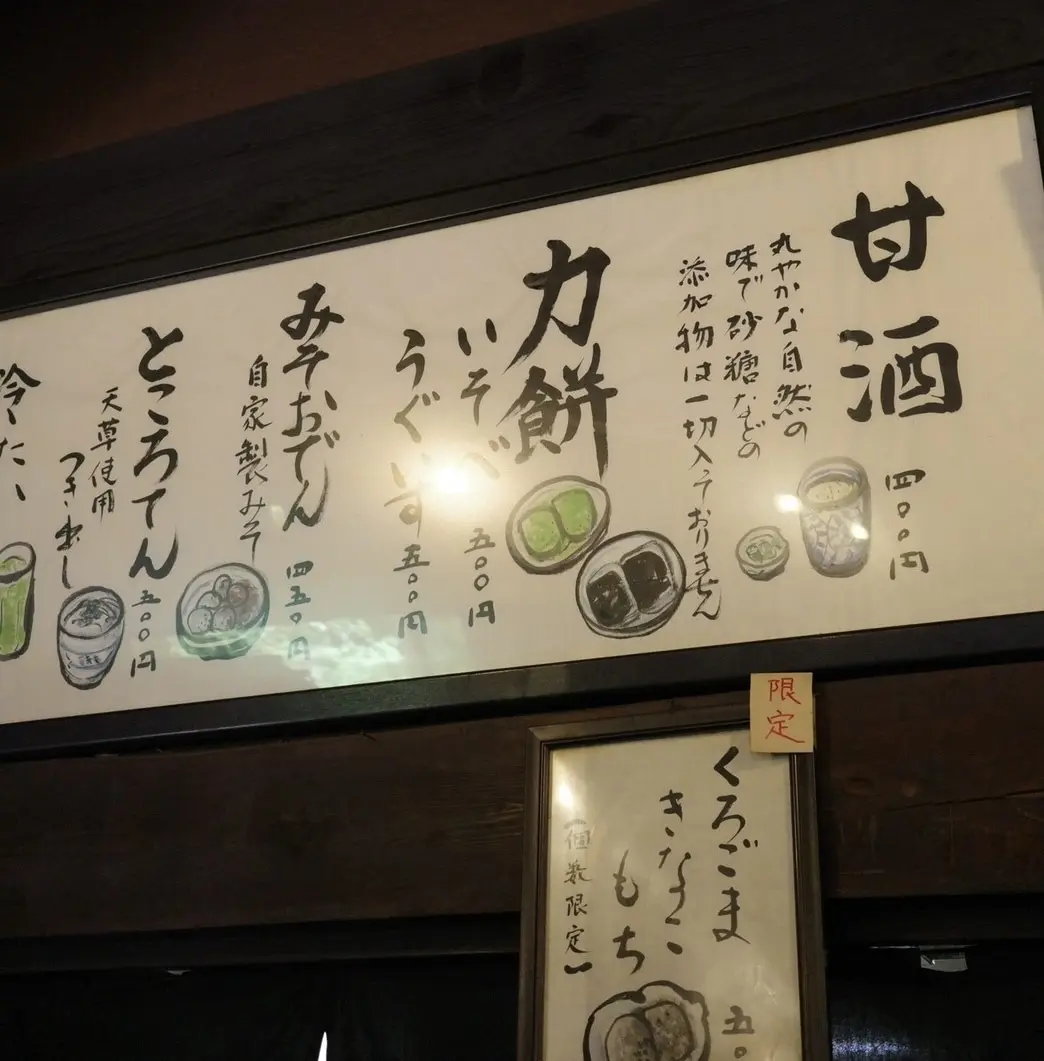 甘酒
四〇〇円
丸やかな自然の
味で砂糖などの
添加物は一切入っておりません
力餅
いそべ
五〇〇円
うぐいす
五〇〇円
みそおでん
四五〇円
自家製みそ
ところてん
五〇〇円
天草使用
つき出し
冷たい
限定
くろごま
きなこ
もち
(個数限定)
五〇